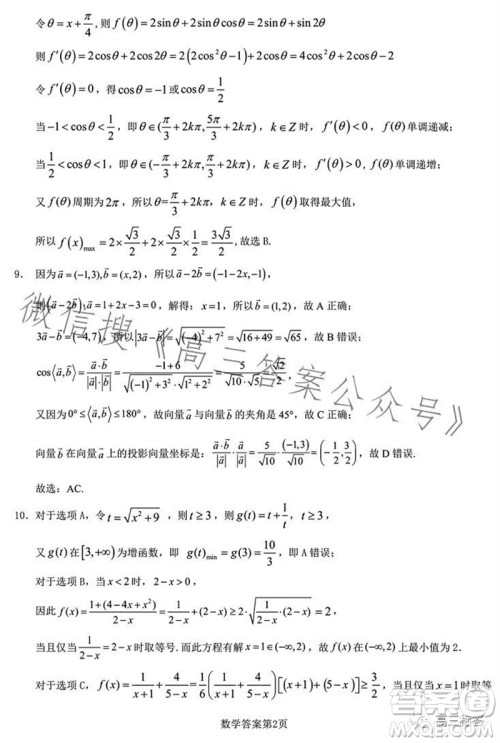 令θ=x+π/4,则f(θ)=2sinθ+sin2θ
则f′(θ)=2cosθ+2cos2θ=2(2cos²θ-1)+2cosθ=4cos²θ+2cosθ-2
令f′(θ)=0，得cosθ=-1或cosθ=1/2
当-1<cosθ<1/2，即θ∈(π/3+2kπ,5π/3+2kπ)，k∈Z时，f′(θ)<0，f(θ)单调递减；
当1/2<cosθ<1，即θ∈(-π/3+2kπ,π/3+2kπ)，k∈Z时，f′(θ)>0，f(θ)单调递增；
又f(θ)周期为2π，所以θ=π/3+2kπ，k∈Z时，f(θ)取得最大值，
所以f(x)max=2×√3/2+2×√3/2×1/2=3√3/2,故选B.
9. 因为a⃗=(-1,3),b⃗=(x,2)，所以a⃗-2b⃗=(-1-2x,-1)，
则(a⃗-2b⃗)·a⃗=1+2x-3=0，解得：x=1，所以b⃗=(1,2)，故A正确；
3a⃗-b⃗=(-4,7)，所以|3a⃗-b⃗|=√((-4)²+7²)=√(16+49)=√65，故B错误；
cos⟨a⃗,b⃗⟩=a⃗·b⃗/(|a⃗|·|b⃗|)=(-1+6)/(√((-1)²+3²)·√(1²+2²))=5/(√10·√5)=√2/2,
又因为0°≤⟨a⃗,b⃗⟩≤180°，故向量a⃗与向量b⃗的夹角是45°，故C正确；
向量b⃗在a⃗上的投影向量坐标是：a⃗·b⃗/|a⃗|·a⃗/|a⃗|=5/√10·(-1,3)/√10=(-1/2,3/2)，故D错误.
故选：AC.
10. 对于选项A，令t=√(x²+9)，则t≥3，则g(t)=t+1/t，t≥3，
又g(t)在[3,+∞)为增函数，即g(t)min=g(3)=10/3，即A错误；
对于选项B，当x<2时，2-x>0，
因此f(x)=(1+(4-4x+x²))/(2-x)=1/(2-x)+(2-x)≥2·√(1/(2-x)·(2-x))=2，
当且仅当1/(2-x)=2-x时取等号.而此方程有解x=1∈(-∞,2)，故f(x)在(-∞,2)上最小值为2.
对于选项C，f(x)=1/(x+1)+4/(5-x)=1/6(1/(x+1)+4/(5-x))[(x+1)+(5-x)]≥3/2，当且仅当x=1时取等
数学答案第2页
微信搜《高三答案公众号》
高三标答